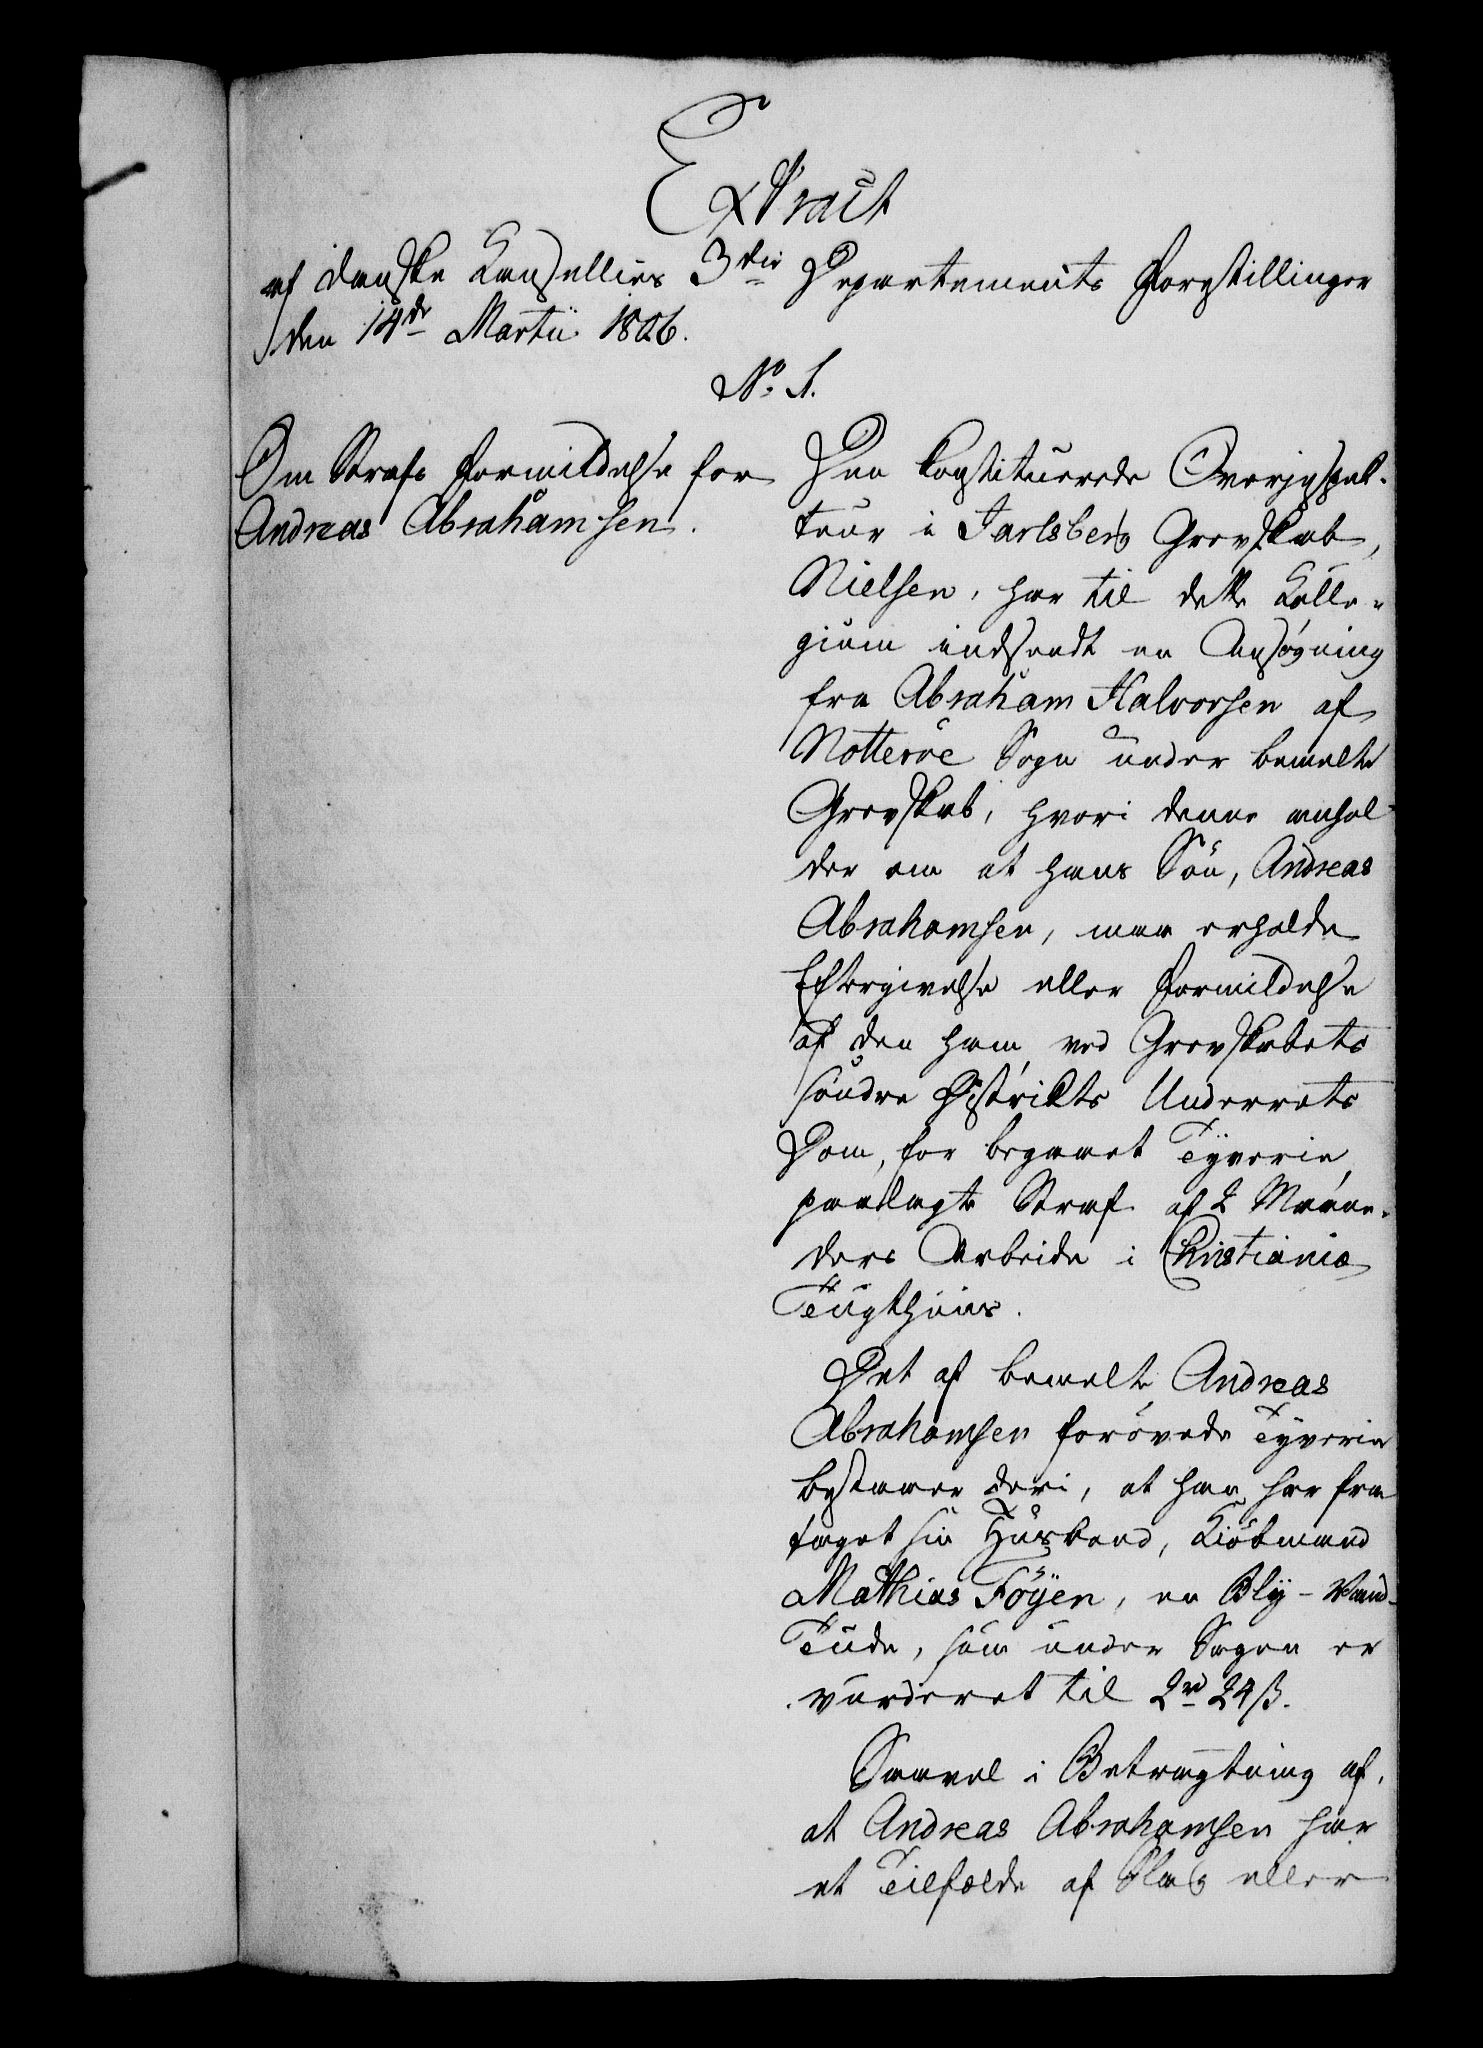 Extract
af danske Kansellies 3die Departements Forestillinger
den 14de Martii 1806.
No. 1.
Om Strafs Formildelse for
Andreas Abrahamsen.
Den konstituerede Overinspek-
teur i Jarlsberg Grevskab,
Nielsen, har til dette Kolle-
gium indsendt en Ansøgning
fra Abraham Halvorsen af
Notteröe Sogn under bemelte
Grevskab, hvori denne anhol-
der om at hans Sön, Andreas
Abrahamsen, maa erholde
Eftergivelse eller Formildelse
af den ham ved Grevskabets
söndre Distrikts Underrets
Dom, for begaaet Tyverie,
paalagte Straf af 2 Maane-
ders Arbeide i Christiania
Tugthuus.
Det af bemelte Andreas
Abrahamsen forövede Tyverie
bestaaer deri, at han har fra
taget sin Husbond, Kiöbmand
Mathias Föyen, en Bly-Vand-
Tude, som under Sagen er
vurderet til 2rd 24ß.
Saavel i Betragtning af,
at Andreas Abrahamsen har
et Tilfælde af Slag eller